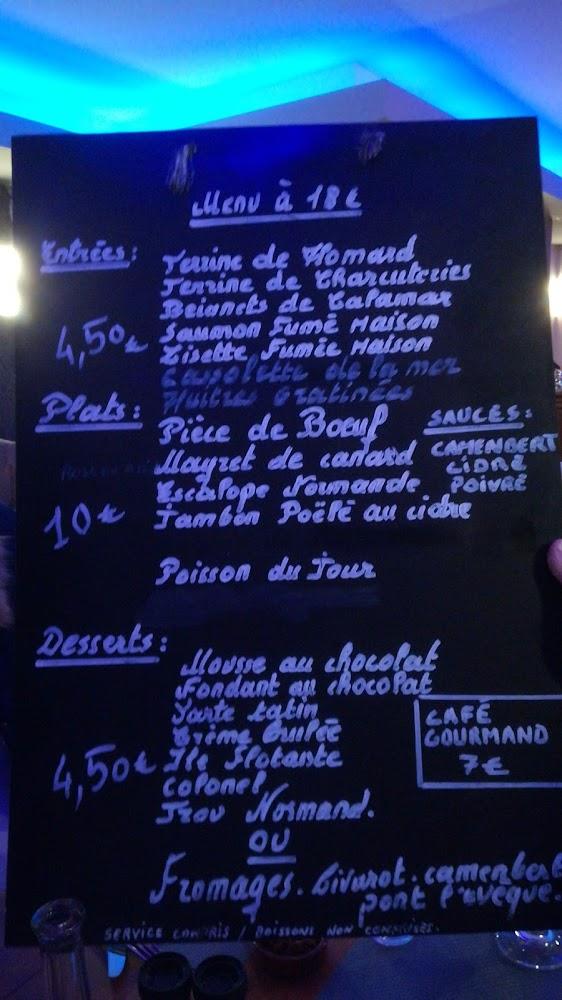 Menu à 18 €
Entrées:
Terrine de Homard
Terrine de Charcuteries
Beignets de Calamar
Saumon Fumé Maison
4,50€
Lisette Fumée Maison
Cassolette de la mer
Huîtres Gratinées
Plats:
Pièce de Boeuf
Magret de canard
Escalope Normande
10€
Jambon Poêlé au cidre
SAUCES:
CAMEMBERT
CIDRE
POIVRE
Poisson du Jour
Desserts:
Mousse au chocolat
Fondant au chocolat
Tarte tatin
Crème Brulée
4,50€
Ile Flotante
Colonel
Trou Normand.
CAFÉ
GOURMAND
7€
OU
Fromages. Livarot. camembert
pont l'évèque.
SERVICE COMPRIS / BOISSONS NON COMPRISES.